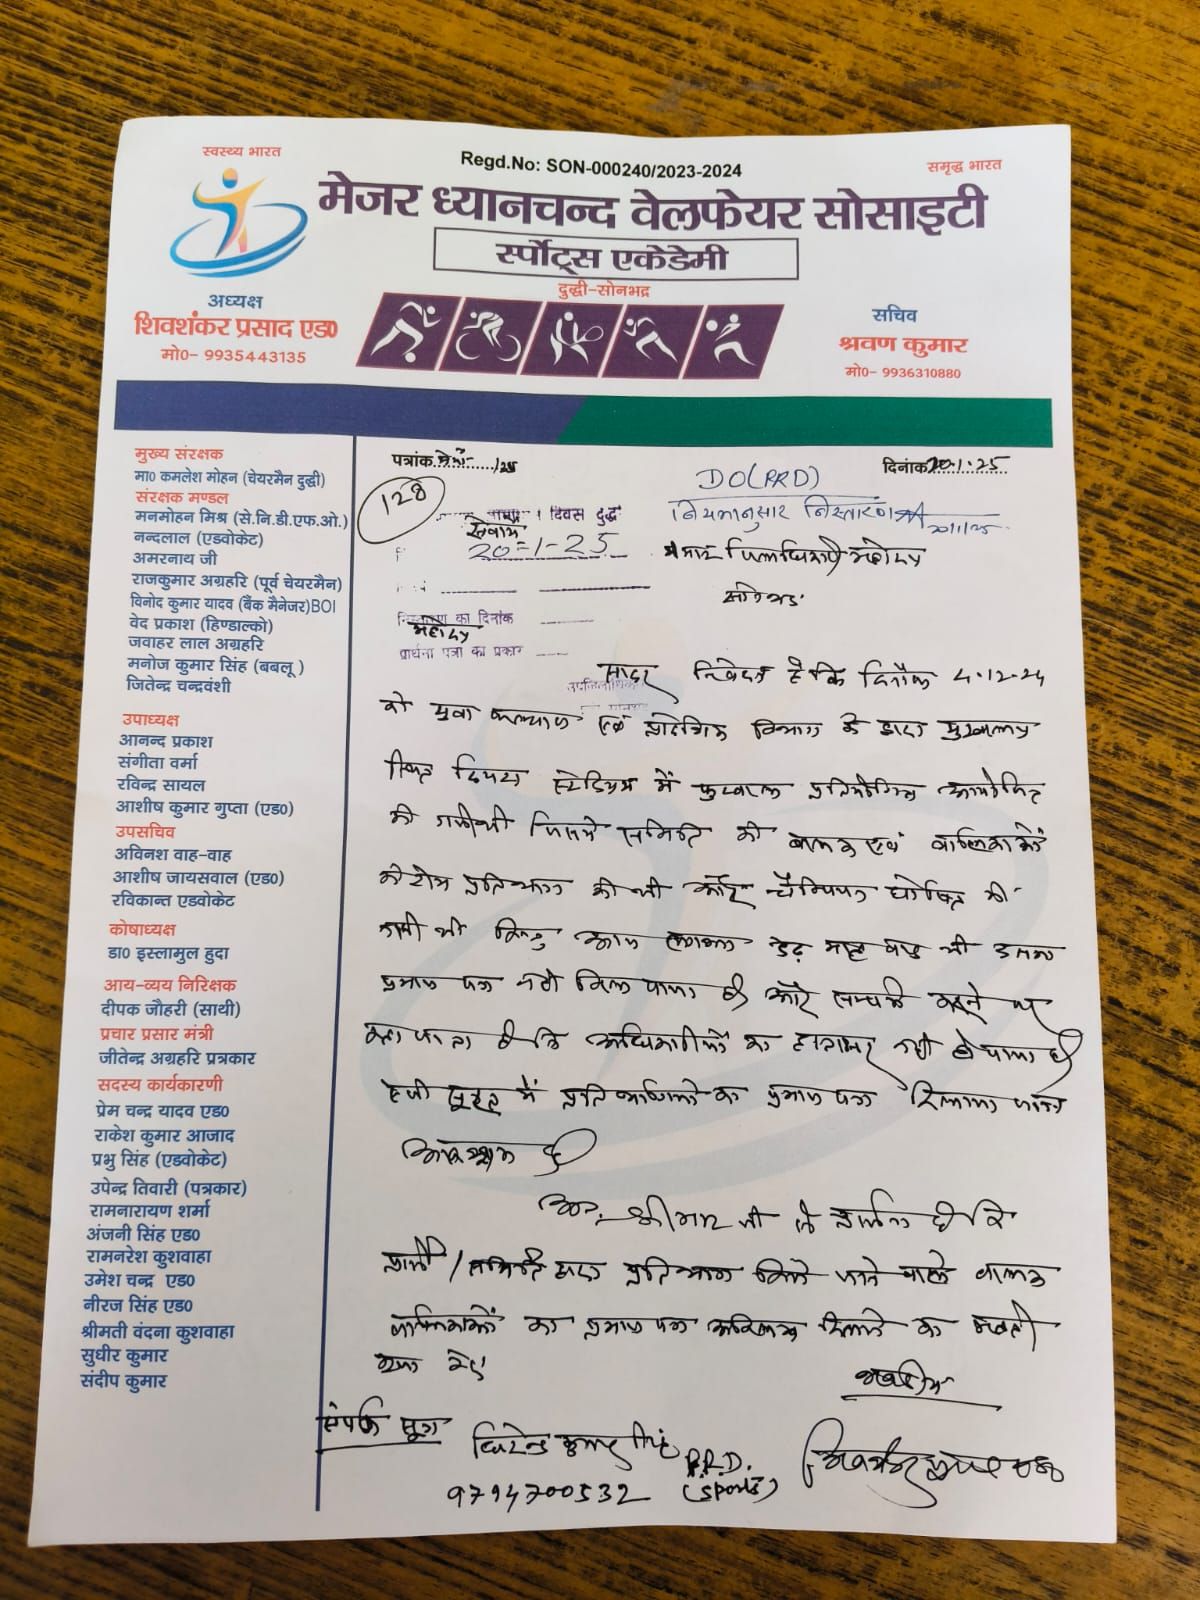 स्वस्थ्य भारत
Regd.No: SON-000240/2023-2024
समृद्ध भारत
मेजर ध्यानचन्द वेलफेयर सोसाइटी
स्पोर्ट्स एकेडेमी
दुद्धी-सोनभद्र
अध्यक्ष
शिवशंकर प्रसाद एड0
मो0- 9935443135
सचिव
श्रवण कुमार
मो0- 9936310880
मुख्य संरक्षक
मा0 कमलेश मोहन (चेयरमैन दुद्धी)
संरक्षक मण्डल
मनमोहन मिश्र (से.नि.डी.एफ.ओ.)
नन्दलाल (एडवोकेट)
अमरनाथ जी
राजकुमार अग्रहरि (पूर्व चेयरमैन)
विनोद कुमार यादव (बैंक मैनेजर)BOI
वेद प्रकाश (हिण्डाल्को)
जवाहर लाल अग्रहरि
मनोज कुमार सिंह (बबलू )
जितेन्द्र चन्द्रवंशी
उपाध्यक्ष
आनन्द प्रकाश
संगीता वर्मा
रविन्द्र सायल
आशीष कुमार गुप्ता (एड0)
उपसचिव
अविनश वाह-वाह
आशीष जायसवाल (एड0)
रविकान्त एडवोकेट
कोषाध्यक्ष
डा0 इस्लामुल हुदा
आय-व्यय निरिक्षक
दीपक जौहरी (साथी)
प्रचार प्रसार मंत्री
जीतेन्द्र अग्रहरि पत्रकार
सदस्य कार्यकारणी
प्रेम चन्द्र यादव एड0
राकेश कुमार आजाद
प्रभु सिंह (एडवोकेट)
उपेन्द्र तिवारी (पत्रकार)
रामनारायण शर्मा
अंजनी सिंह एड0
रामनरेश कुशवाहा
उमेश चन्द्र एड0
नीरज सिंह एड0
श्रीमती वंदना कुशवाहा
सुधीर कुमार
संदीप कुमार
पत्रांक /25
दिनांक 20.1.25
128
DO(PRD)
नियमानुसार निस्तारण
20/1/25
दिवस दुद्धी
सेवाम
20-1-25
जिलाधिकारी महोदय
सोनभद्र
निस्तारण का दिनांक
महोदय
प्रार्थना पत्रों का प्रकार
उपजिलाधिकारी
सादर निवेदन है कि दिनाँक 4.12.24
को युवा कल्याण एवं प्रादेशिक विभाग के द्वारा मुख्यालय
स्थित स्टेडियम में फुटबाल प्रतियोगिता आयोजित
की गयी थी जिसमे समिति की बालक एवं बालिकाओं
की टीम प्रतिभाग की थी और चैम्पियन घोषित की
गयी थी किन्तु आज लगभग डेढ़ माह बाद भी उनका
प्रमाण पत्र नही मिल पाया है और सम्पर्क करने पर
कहा जाता है कि अधिकारीयों का हस्ताक्षर नही हो पाया है
ऐसी सूरत में प्रतिभागियों का प्रमाण पत्र दिलाया जाना
आवश्यक है
अतः श्रीमान जी से प्रार्थना है कि
प्रार्थी / समिति द्वारा प्रतिभाग किये जाने वाले बालक
बालिकाओं का प्रमाण पत्र अविलम्ब दिलाने का
कृपा करें
संपर्क सूत्र
कुमार सिंह
P.R.D.
(sports)
9794700532